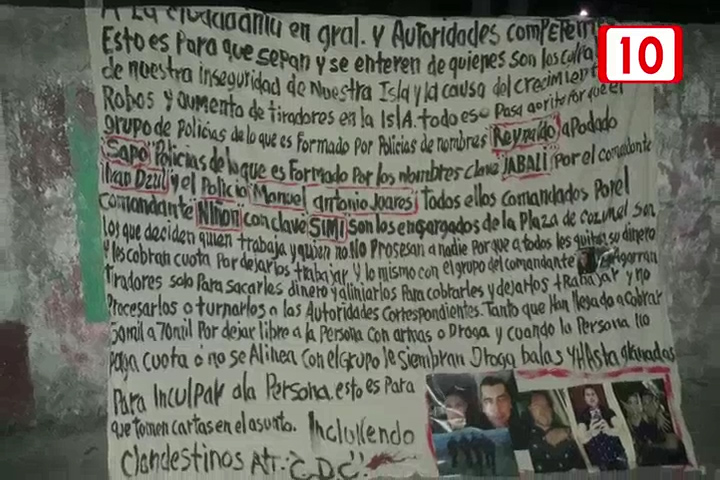 A La Ciudadania en gral. y Autoridades compete
10
Esto es Para que sepan y se enteren de quienes son los culpa
de nuestra inseguridad de Nuestra Isla y la causa del crecimient
Robos y aumento de tiradores en la isla. todo eso Pasa por que el
grupo de Policias de lo que es Formado Por Policias de nombres Reynaldo apodado
Sapo Policias de lo que es Formado Por los nombres clave JABALI Por el comandante
Ivan Dzul y el Policia Manuel antonio Juares, Todos ellos comandados Por el
comandante Niñon con clave SIMI son los encargados de la Plaza de cozumel son
Los que deciden quien trabaja y quien no. No Prosesan a nadie Porque a todos les quitan su dinero
y les cobran cuota Por dejarlos trabajar y lo mismo con el grupo del comandante Agarran
tiradores solo Para sacarles dinero y aliniarlos Para cobrarles y dejarlos trabajar y no
Procesarlos o turnarlos a las Autoridades Correspondientes. Tanto que Han llegado a Cobrar
50mil a 70mil Por dejar libre a la Persona con armas o Droga y cuando la Persona no
Paga cuota o no se Alinea con el grupo le Siembran Droga balas y HAsta granadas
Para inculpar ala Persona. esto es Para
que tomen cartas en el asunto. Inclullendo
Clandestinos ATT: "C.D.C"